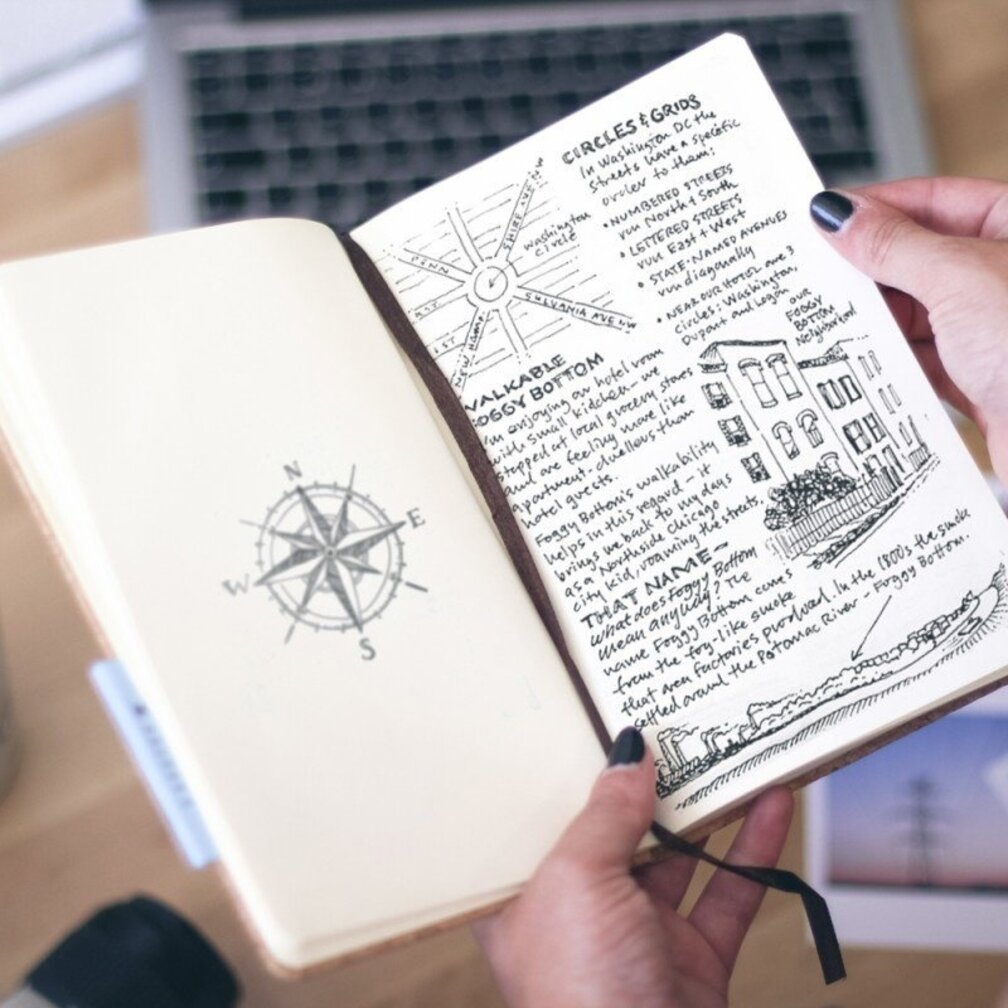 N
E
W
S
CIRCLES & GRIDS
In Washington DC the
streets have a specific
order to them:
• NUMBERED STREETS
run North & South
• LETTERED STREETS
run East & West
• STATE-NAMED AVENUES
run diagonally
• NEAR OUR HOTEL are 3
circles: Washington,
Dupont and Logan
Washington
Circle
PENN
SHIRE AVE NW
SYLVANIA AVE NW
NEW HAMP
ST
ST
OUR
FOGGY
BOTTOM
Neighborhood
WALKABLE
FOGGY BOTTOM
I'm enjoying our hotel room
with small kitchen - we
stopped at local grocery stores
and are feeling more like
apartment-dwellers than
hotel guests.
Foggy Bottom's walkability
helps in this regard - it
brings me back to my days
as a Northside Chicago
city kid, roaming the streets.
THAT NAME -
What does Foggy Bottom
mean anyway? The
name Foggy Bottom comes
from the fog-like smoke
that area factories produced. In the 1800s the smoke
settled around the Potomac River - Foggy Bottom.